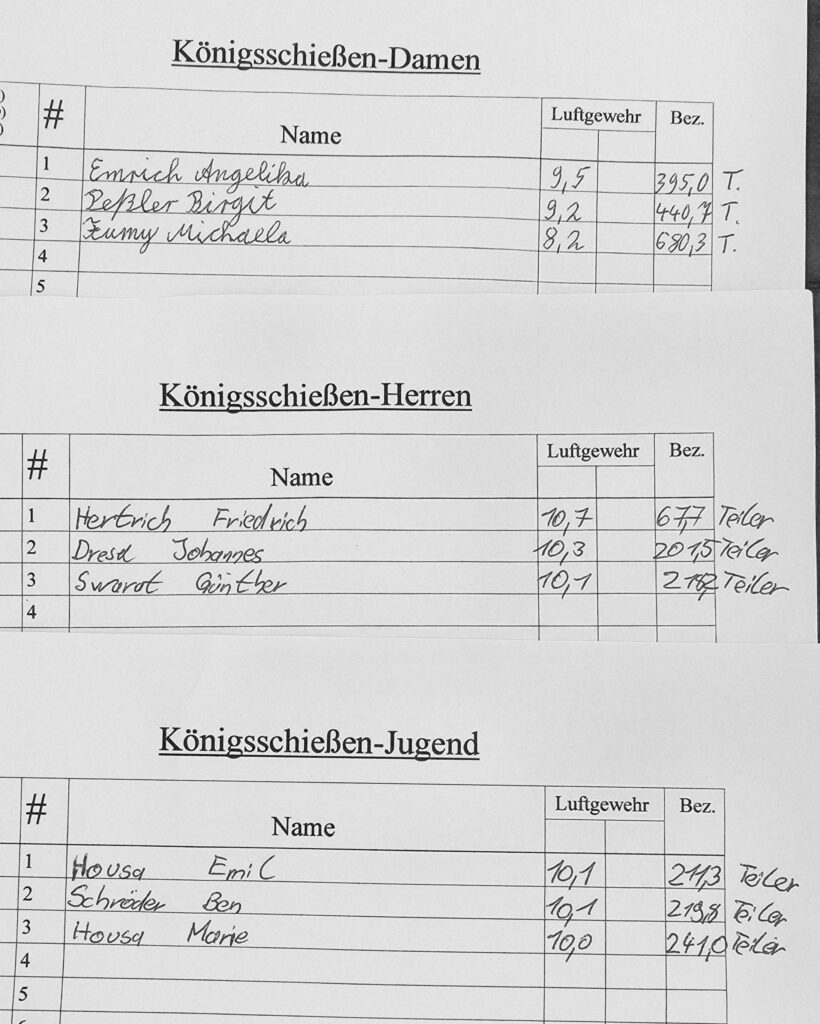 Königsschießen-Damen
# Name Luftgewehr Bez.
1 Emrich Angelika 9,5 395,0 T.
2 Peßler Birgit 9,2 440,7 T.
3 Michaela 8,2 680,3 T.
4
5
Königsschießen-Herren
# Name Luftgewehr Bez.
1 Hertrich Friedrich 10,7 67,7 Teiler
2 Johannes 10,3 201,5 Teiler
3 Swarat Günther 10,1 Teiler
4
Königsschießen-Jugend
# Name Luftgewehr Bez.
1 Housa Emil 10,1 211,3 Teiler
2 Schröder Ben 10,1 219,8 Teiler
3 Housa Marie 10,0 241,0 Teiler
4
5